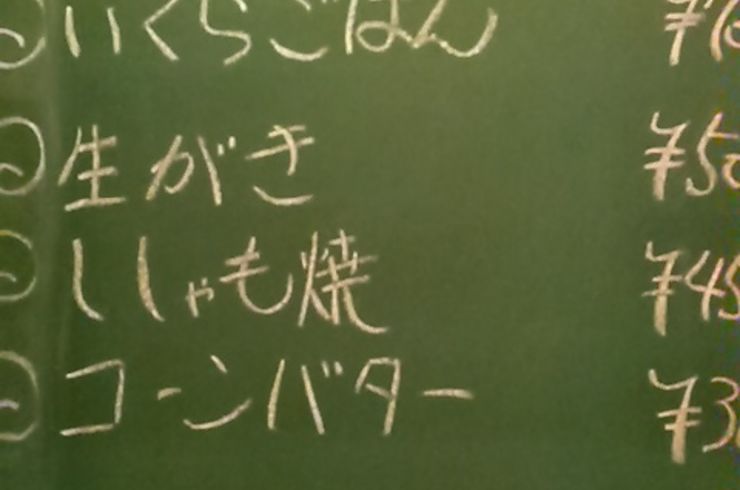 いくらごはん
生がき ¥50
ししゃも焼 ¥45
コーンバター ¥3